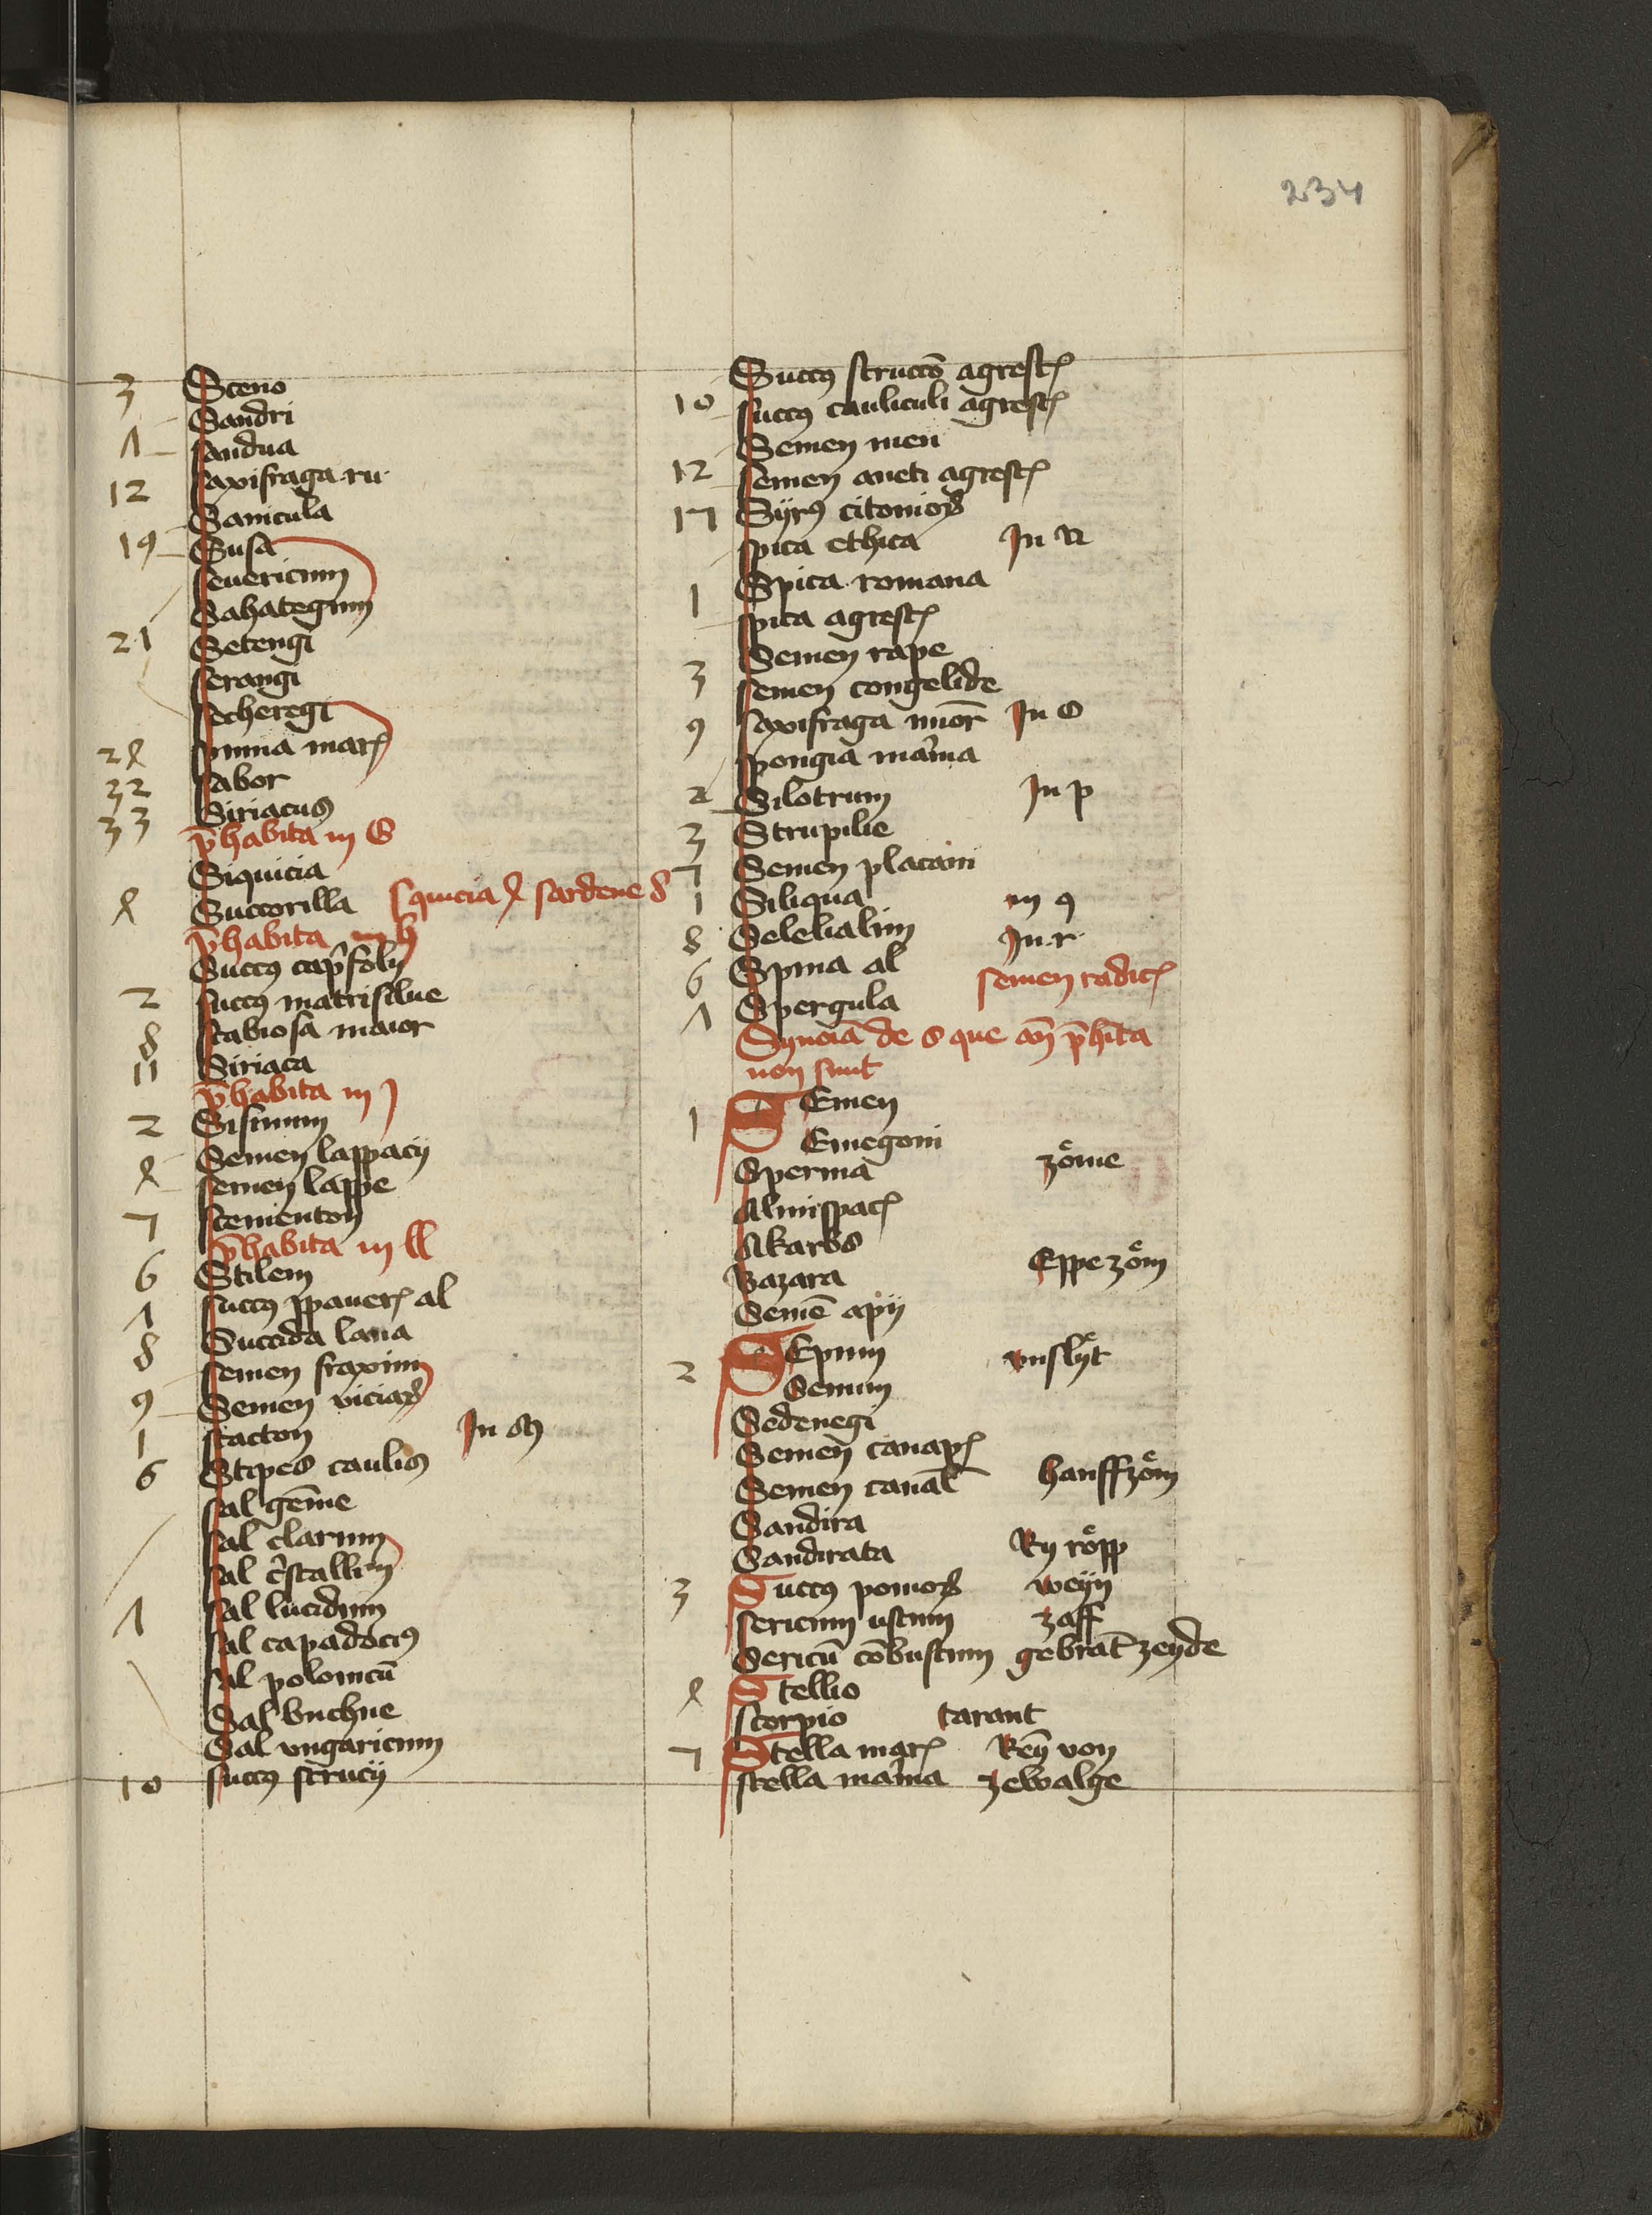 234
3 Sceno
Sandri
Λ Sandua
12 Saxifraga ru·
Sanicula
19 Susa
Seuericum
Sahategnin
21 Setengi
Serangi
Secheregi
2ꝭ Spuma marꝭ
32 Sabor
33 Siriacus
p̄habita in G
Siquicia
Succorilla Squicia sardene 8
p̄habita in h
Succꝰ cap̄folÿ
2 succꝰ matrisilue
8 scabiosa maior
11 Siriaca
p̄habita in J
2 Sisimum
Semen lappacÿ
semen lappe
7 Scementon
p̄habita in ll
6 Stilem
Λ succꝰ ppauerꝭ al
8 Succida lana
semen fraxini
9 Semen viciaꝝ
1 stacton In M
6 Stipes caulis
sal gēme
sal clarum
sal c̄stallin
Λ sal lucidum
sal capadociꝰ
sal polonicū
Sal buchne
Sal vngaricum
10 succꝰ strucÿ
Succꝰ structō agrestꝭ
10 succꝰ cauliculi agrestꝭ
Semen meu
12 semen aneti agrestꝭ
17 Syrꝰ citonioꝝ
spica ethica In N
1 Spica romana
spica agrestꝭ
Semen rape
3 semen congelide
9 saxifraga mior̄ In O
spongia marina
2 Silotrum In p
3 Strupilie
7 Semen placani
1 Siliqua in q
8 Selelialim In r
6 Spina al semen radicꝭ
Λ Spergula
Synoīa de s que an̄ p̄hita
non sunt
1 SEmen
Emegoni
Sperma zöme
Almispacꝭ
Akarbs
Bazara Eppe zöm
Semē apÿ
2 SEpum vnslÿt
Semum
Sedenegi
Semen canapꝭ
Semen canal̄ hanffzöm
Sandira
Sandirata Ry röpp
3 Succꝰ pomoꝝ weyn
sericum ustum zaff
Sericū cōbustum gebrāt zeyde
Stellio
scorpio tarant
7 Stella marꝭ Reȳ von
stella marina zewalge